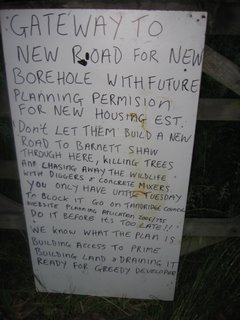 GATEWAY TO
NEW ROAD FOR NEW
BOREHOLE WITH FUTURE
PLANNING PERMISION
FOR NEW HOUSING EST.
DON'T LET THEM BUILD A NEW
ROAD TO BARNETT SHAW
THROUGH HERE, KILLING TREES
AND CHASING AWAY THE WILDLIFE
WITH DIGGERS & CONCRETE MIXERS.
YOU ONLY HAVE UNTIL TUESDAY
TO BLOCK IT GO ON TANDRIDGE COUNCIL
WEBSITE PLANNING APLICATION
DO IT BEFORE ITS TOO LATE!!
WE KNOW WHAT THE PLAN IS
BUILDING ACCESS TO PRIME
BUILDING LAND & DRAINING IT
READY FOR GREEDY DEVELOPER